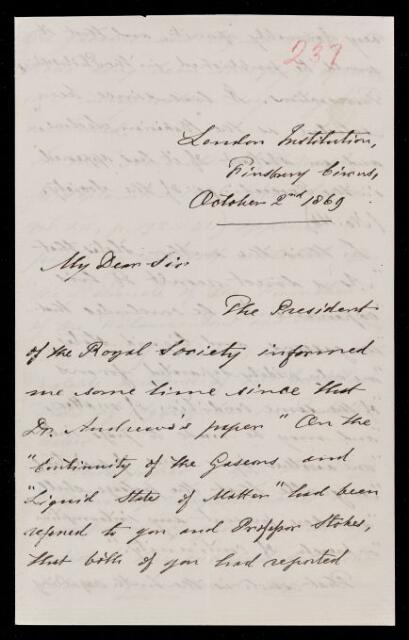 237
London Institution,
Finsbury Circus,
October 2nd 1869
My Dear Sir
The President
of the Royal Society informed
me some time since that
Dr. Andrews's paper "On the
"Continuity of the Gaseous and
"Liquid State of Matter" had been
referred to you and Professor Stokes,
that both of you had reported